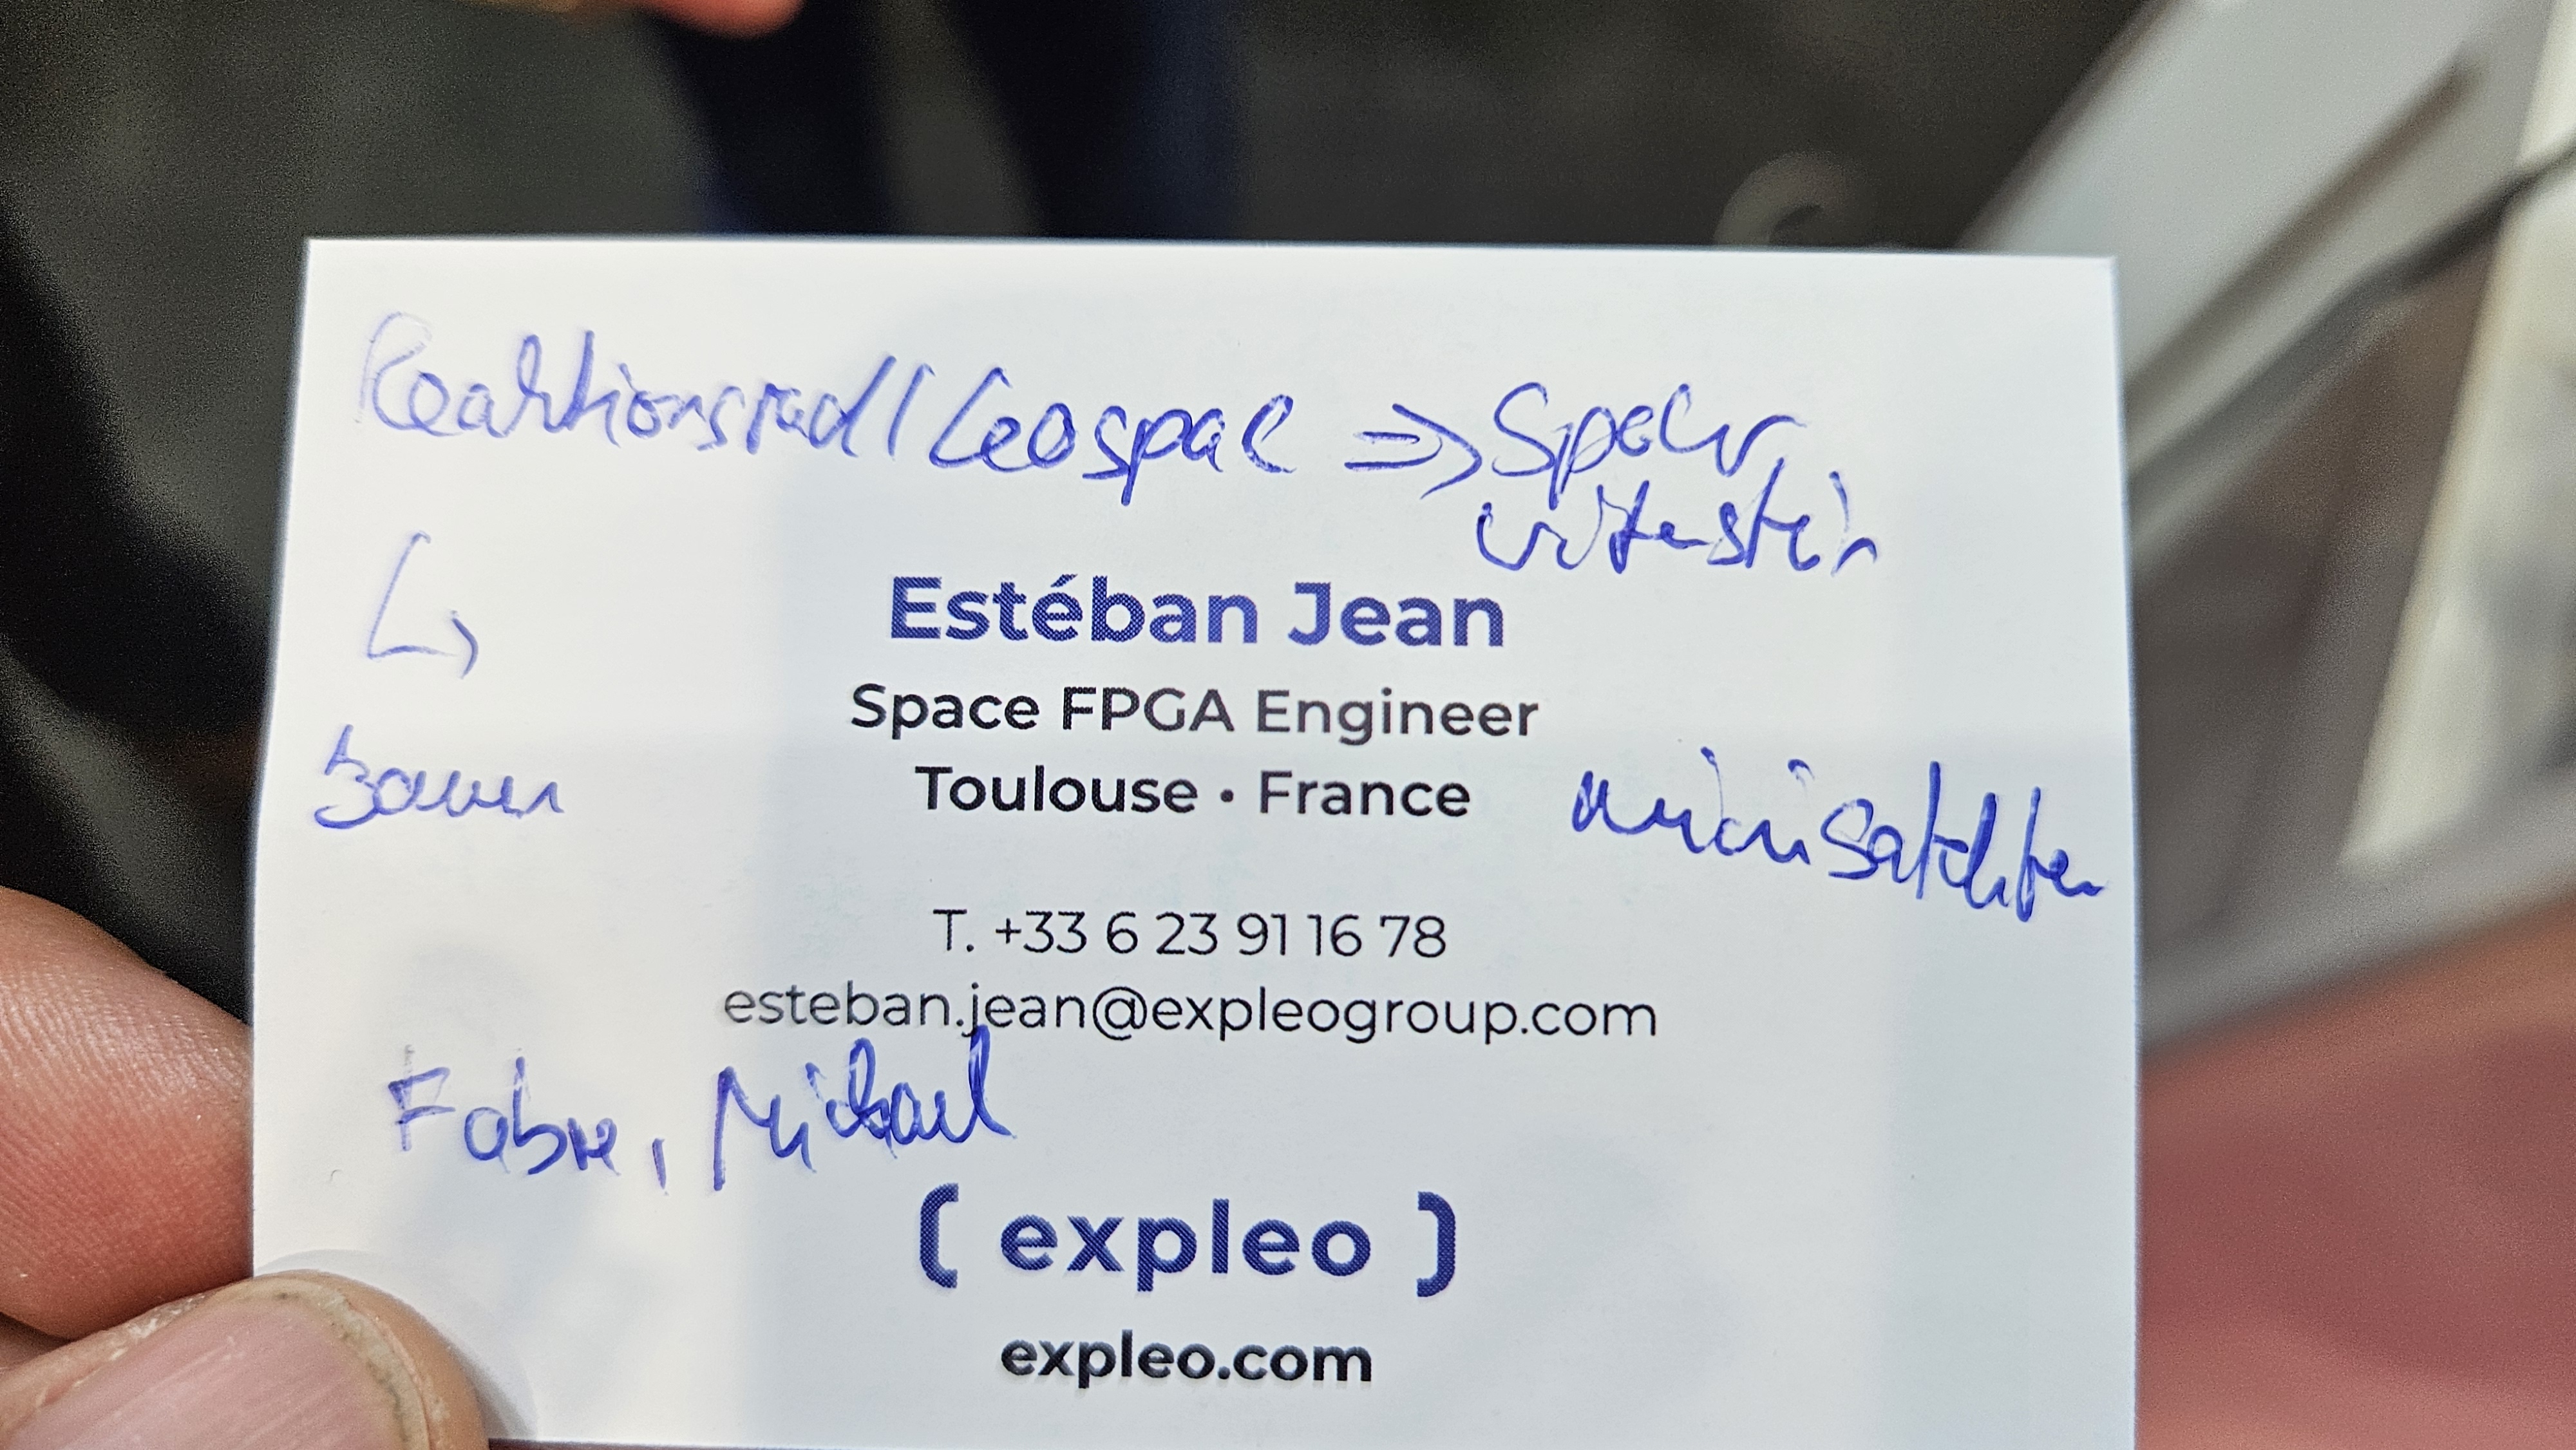 Reaktionsrad / Leospace => Spacer,
Wittenstein
↳
Estéban Jean
Space FPGA Engineer
bauen
Toulouse • France
minisatelliten
T. +33 6 23 91 16 78
esteban.jean@expleogroup.com
Fabre, Michael
( expleo )
expleo.com